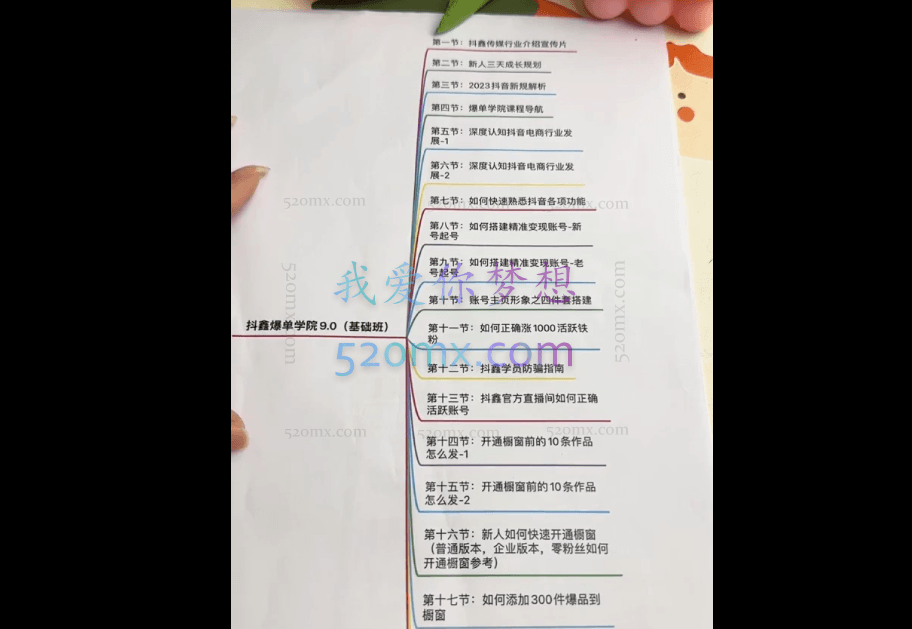 第一节：抖鑫传媒行业介绍宣传片
第二节：新人三天成长规划
第三节：2023抖音新规解析
第四节：爆单学院课程导航
第五节：深度认知抖音电商行业发
展-1
第六节：深度认知抖音电商行业发
展-2
第七节：如何快速熟悉抖音各项功能
520mx.com
520mx.com
第八节：如何搭建精准变现账号-新
号起号
第九节：如何搭建精准变现账号-老
号起号
我爱你梦想
520mx.com
520mx.com
第十节：账号主页形象之四件套搭建
抖鑫爆单学院9.0（基础班）
第十一节：如何正确涨1000活跃铁
粉
520mx.com
第十二节：抖鑫学员防骗指南
第十三节：抖鑫官方直播间如何正确
活跃账号
520mx.com
520mx.com
520mx.com
第十四节：开通橱窗前的10条作品
怎么发-1
第十五节：开通橱窗前的10条作品
怎么发-2
第十六节：新人如何快速开通橱窗
（普通版本，企业版本，零粉丝如何
开通橱窗参考）
第十七节：如何添加300件爆品到
橱窗